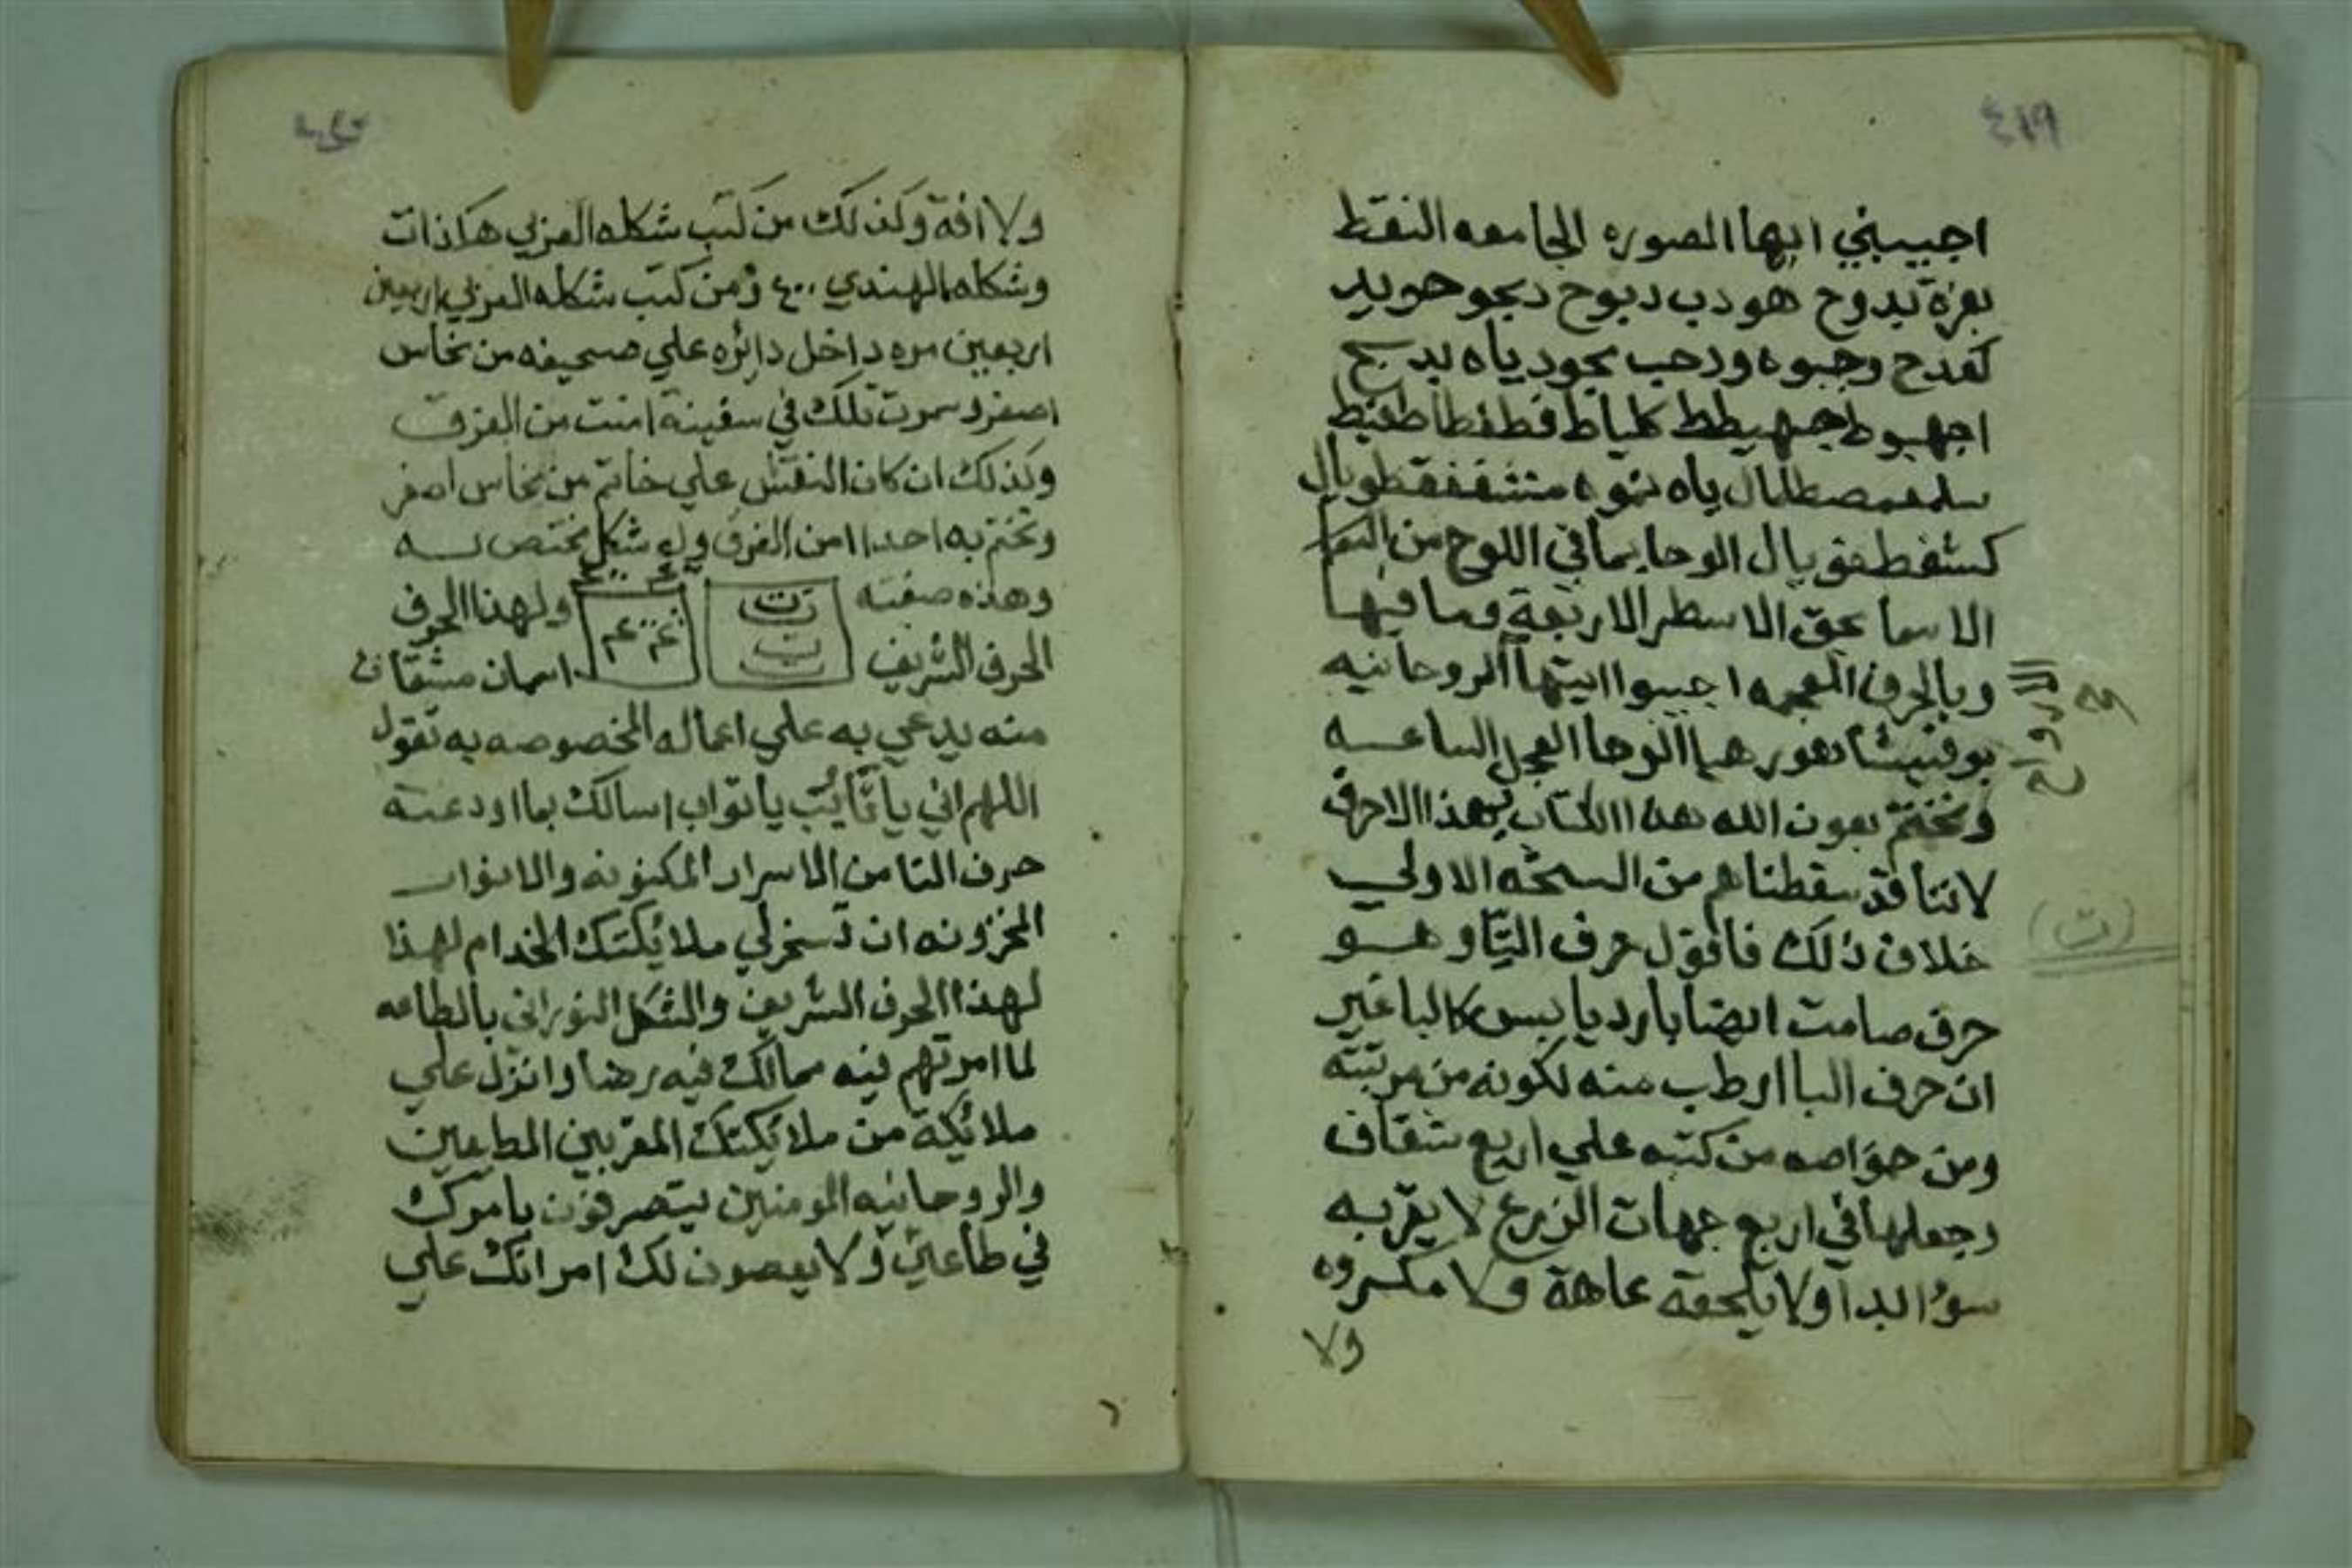 ٤١٩
اجيبيني ايها الصوره الجامعه النقط
بعزة بدوح هودب دبوح دبجو حويد
كفدح وجبوه ودحب بجود ياه بدبج
اجهبوط جهيطط كلياط قطفطا طفيط
ياه نموه متشففقطويال
كشفطفويال الوحا بما في اللوح من
الاسما بحق الاسطر الاربعة وما فيها
وبالحرف المعجمه اجيبوا ايتها الروحانيه
الارواح
هيا الوحا العجل الساعه
ونختم بعون الله هذا الكتاب بهذا الاحرف
لاننا قد سقطناهم من النسخه الاولي
خلاف ذلك فانقول حرف التا وهو
(ت)
حرف صامت ايضا بارد يابس كالبا غير
ان حرف البا ارطب منه لكونه من مرتبته
ومن خواصه من كتبه علي اربع شقاف
وجعلها في اربع جهات الزرع لا يقربه
سوُ ابدا ولا يلحقه عاهة ولا مكروه
ولا
ولا افة وكذلك من كتب شكله العربي هكذا ت
وشكله الهندي ٤٠٠ ومن كتب شكله العربي اربعين
اربعين مره داخل دائره علي صحيفه من نحاس
اصفر وسمرت تلك في سفينة امنت من الغرق
وكذلك ان كان النقش علي خاتم من نحاس اصفر
وتختم به احدا امن الغرق وله شكل يختص به
وهذه صفته
ولهذا الحرف
الحرف الشريف
اسمان مشتقان
منه يدعي به علي اعماله المخصوصه به تقول
اللهم اني يا تائب يا تواب اسالك بما اودعته
حرف التا من الاسرار المكنونه والانوار
المخزونه ان تسخر لي ملائكتك الخدام لهذا
لهذا الحرف الشريف والشكل النوراني بالطاعه
لما امرتهم فيه مما لك فيه رضا وانزل علي
ملائكة من ملائكتك المقربين المطيعين
والروحانيه المومنين يتصرفون بامرك
في طاعتي ولا يعصون لك امر انك علي